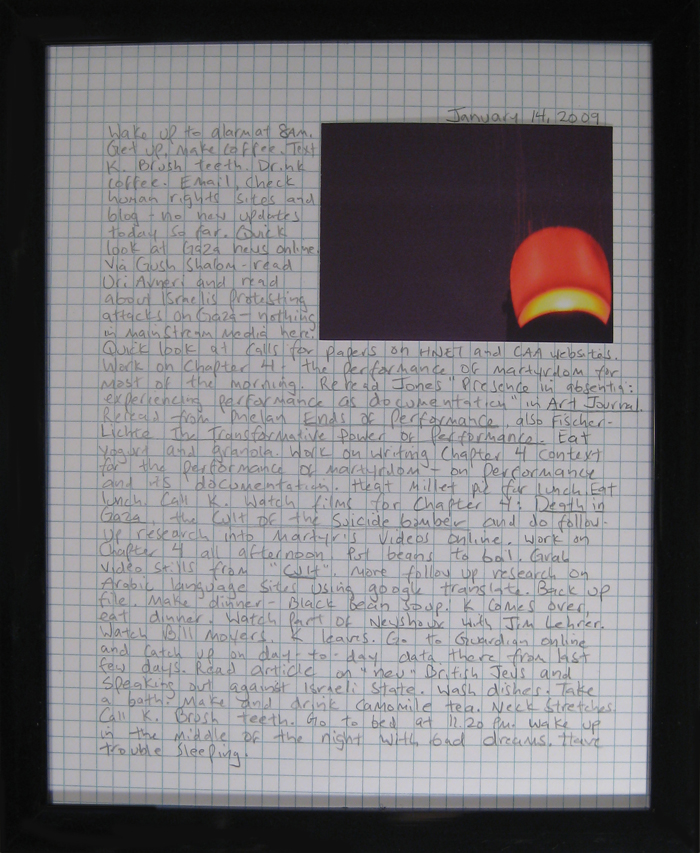 January 14, 2009
Wake up to alarm at 8am.
Get up, make coffee. Text
K. Brush teeth. Drink
coffee. Email, check
human rights sites and
blog - no new updates
today so far. Quick
look at Gaza news online.
Via Gush Shalom - read
Uri Avneri and read
about Israelis protesting
attacks on Gaza - nothing
in mainstream media here.
Quick look at calls for papers on HNET and CAA websites.
Work on Chapter 4: the performance of martyrdom for
most of the morning. Reread Jones "Presence in absentia:
experiencing performance as documentation" in Art Journal.
Reread from Phelan Ends of Performance, also Fischer-
Lichte The Transformative Power of Performance. Eat
yogurt and granola. Work on writing Chapter 4 context
for the performance of martyrdom - on performance
and its documentation. Heat millet pie for lunch. Eat
lunch. Call K. Watch films for Chapter 4: Death in
Gaza, the Cult of the Suicide bomber and do follow-
up research into martyr's videos online. Work on
Chapter 4 all afternoon. Put beans to boil. Grab
video stills from "Cult". More follow up research on
Arabic language sites using google translate. Back up
file. Make dinner - Black bean soup. K comes over,
eat dinner. Watch part of Newshour with Jim Lehrer.
Watch Bill Moyers. K leaves. Go to Guardian online
and catch up on day-to-day data there from last
few days. Read article on "new" British Jews and
speaking out against Israeli state. Wash dishes. Take
a bath. Make and drink camomile tea. Neck stretches.
Call K. Brush teeth. Go to bed at 11.20 pm. Wake up
in the middle of the night with bad dreams. Have
trouble sleeping.